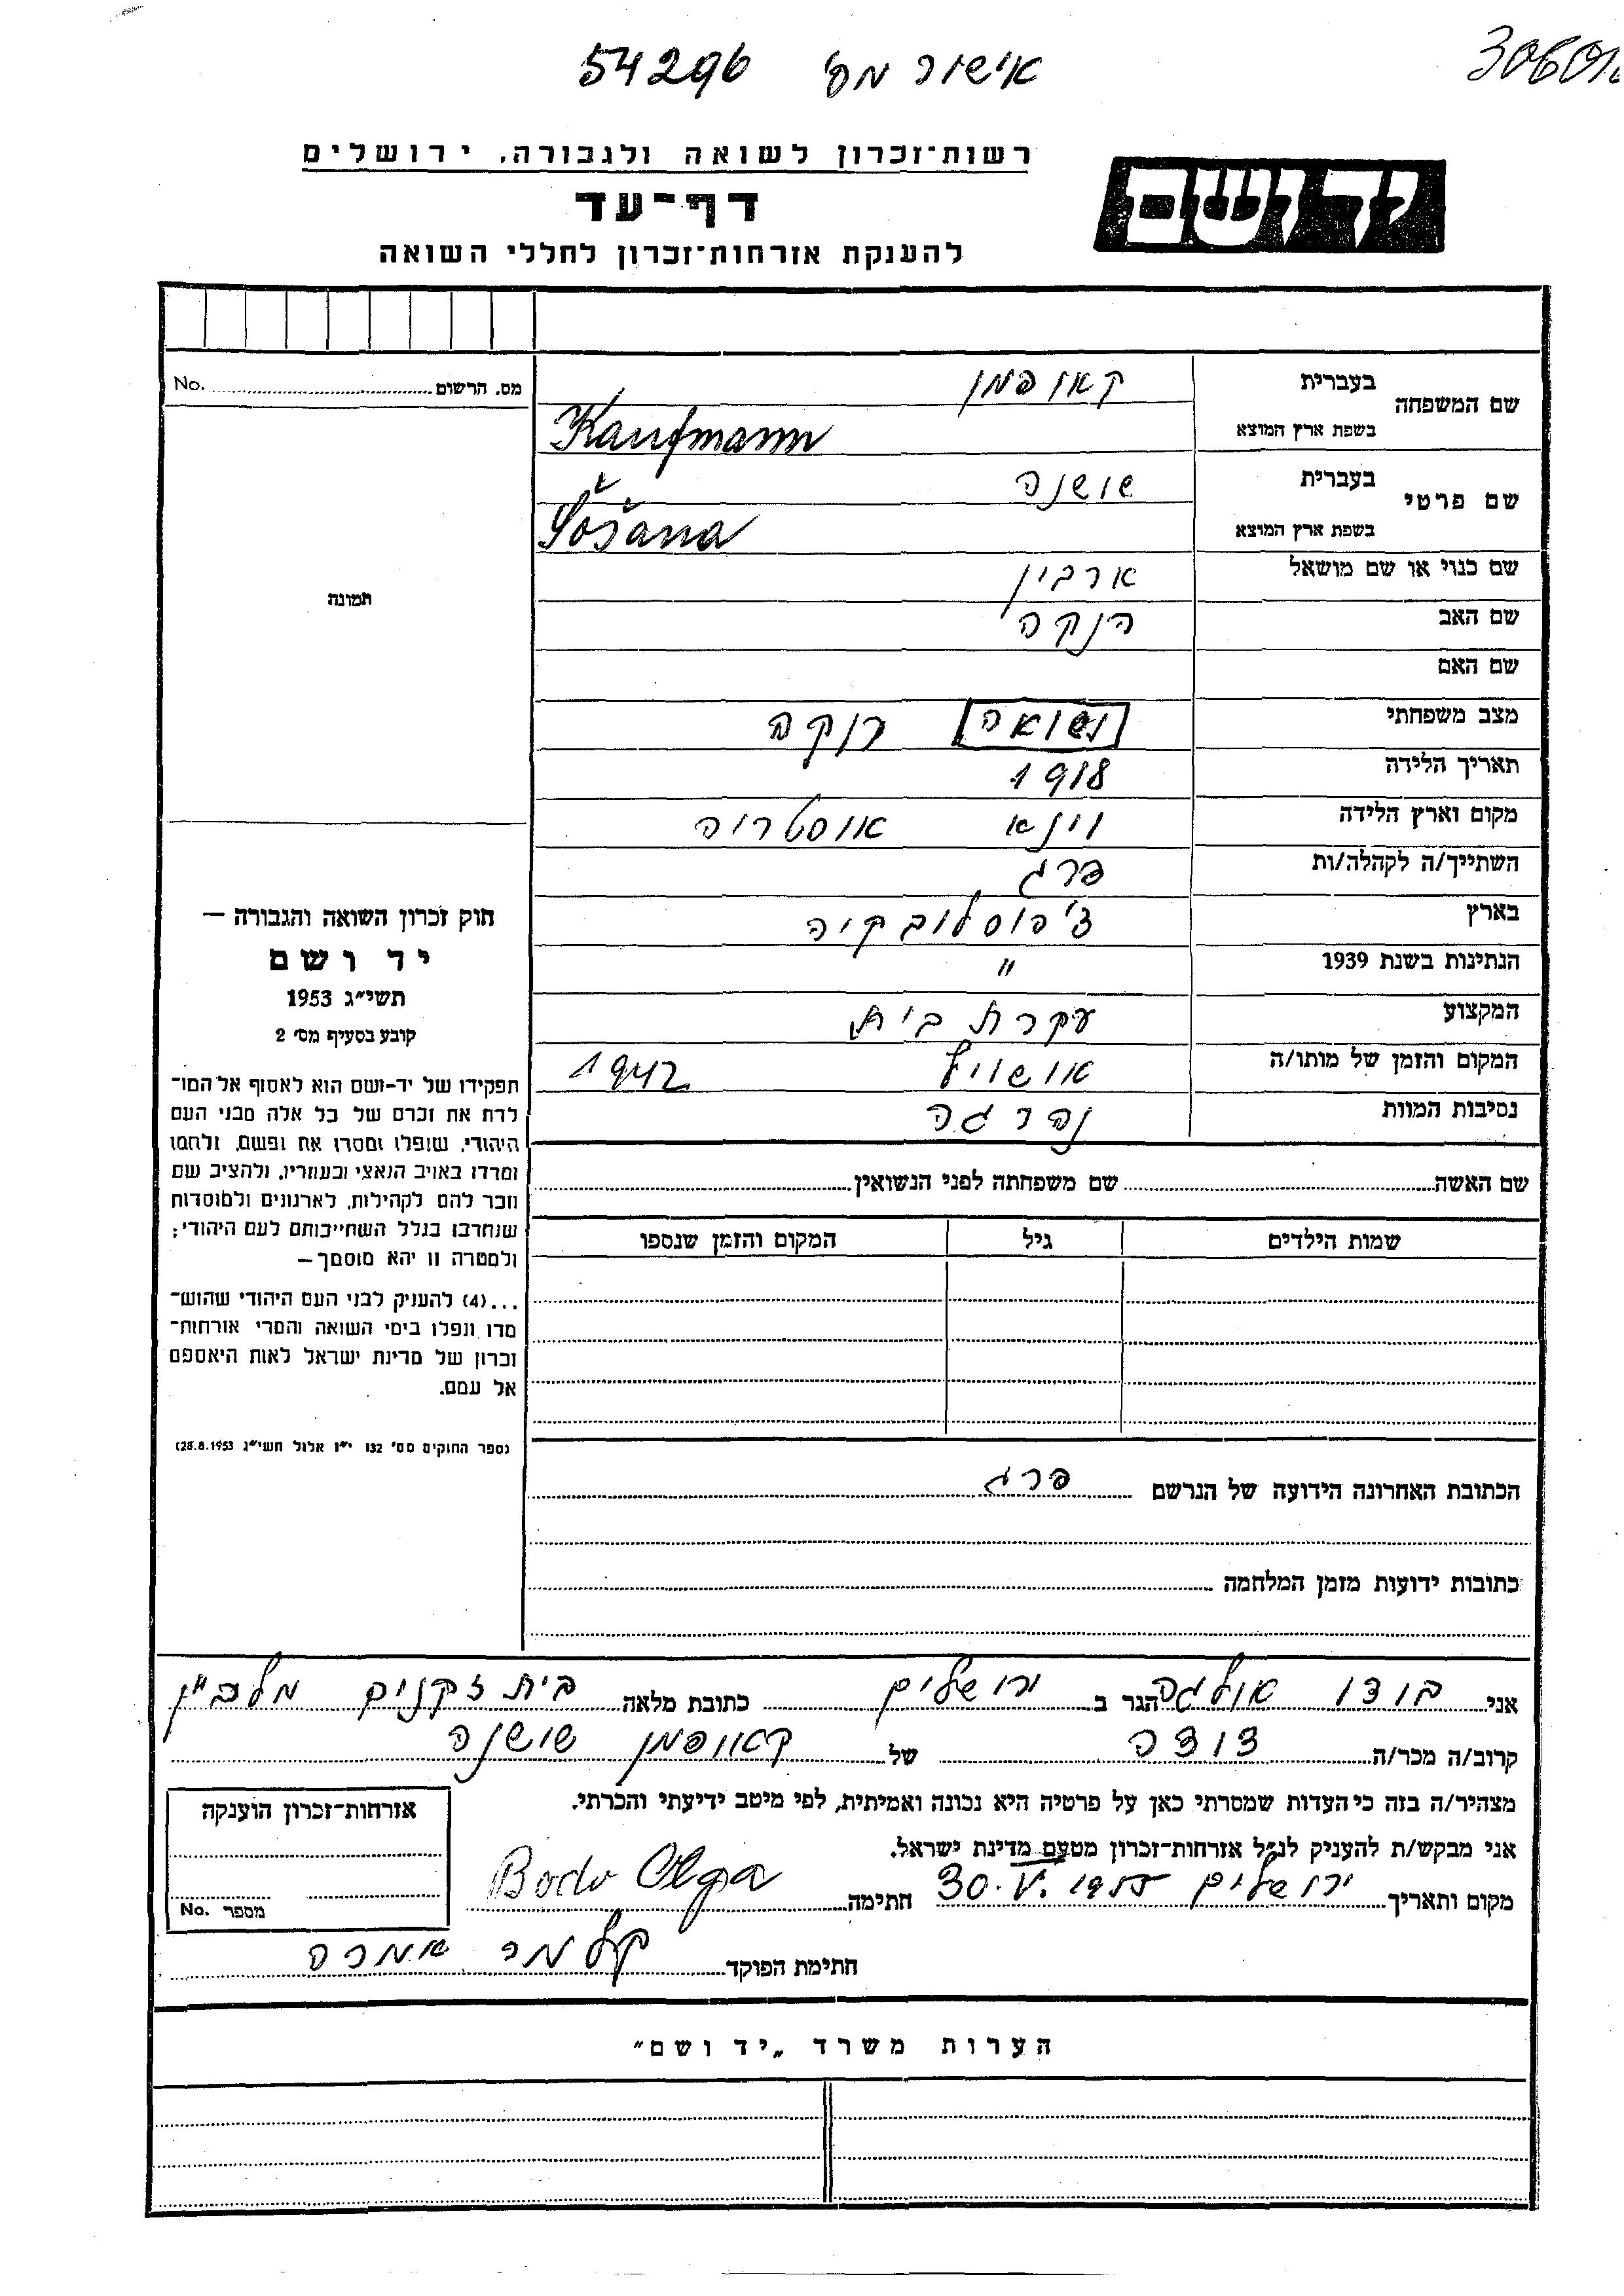 אישור מס' 54296
יד ושם
רשות־זכרון לשואה ולגבורה, ירושלים
דף־עד
להענקת אזרחות־זכרון לחללי השואה
מס. הרשום No.
תמונה
שם המשפחה בעברית קאופמן
בשפת ארץ המוצא Kaufmann
שם פרטי בעברית שושנה
בשפת ארץ המוצא Šošana
שם כנוי או שם מושאל ארבין
שם האב הנקה
שם האם
מצב משפחתי נשואה רוקה
תאריך הלידה 1918
מקום וארץ הלידה וינא אוסטריה
השתייך/ה לקהלה/ות פרג
בארץ צ'כוסלובקיה
הנתינות בשנת 1939 "
המקצוע עקרת בית
המקום והזמן של מותו/ה אושויץ 1942
נסיבות המוות נהרגה
חוק זכרון השואה והגבורה —
יד ושם
תשי״ג 1953
קובע בסעיף מס׳ 2
תפקידו של יד-ושם הוא לאסוף אל המו־
לדת את זכרם של כל אלה מבני העם
היהודי, שנפלו ומסרו את נפשם, נלחמו
ומרדו באויב הנאצי ובעוזריו, ולהציב שם
וזכר להם לקהילות, לארגונים ולמוסדות
שנחרבו בגלל השתייכותם לעם היהודי;
ולמטרה זו יהא מוסמך —
...(4) להעניק לבני העם היהודי שהוש־
מדו ונפלו בימי השואה והמרי אזרחות־
זכרון של מדינת ישראל לאות היאספם
אל עמם.
(ספר החוקים מס׳ 132 י״ז אלול תשי״ג 28.8.1953)
שם האשה שם משפחתה לפני הנשואין
שמות הילדים גיל המקום והזמן שנספו
הכתובת האחרונה הידועה של הנרשם פרג
כתובות ידועות מזמן המלחמה
אני בודו אולגה הגר ב ירושלים כתובת מלאה בית זקנים מלב״ן
קרוב/ה מכר/ה דודה של קאופמן שושנה
מצהיר/ה בזה כי העדות שמסרתי כאן על פרטיה היא נכונה ואמיתית, לפי מיטב ידיעתי והכרתי.
אני מבקש/ת להעניק לנ״ל אזרחות־זכרון מטעם מדינת ישראל.
מקום ותאריך ירושלים 30.V.1955 חתימה Bodo Olga
חתימת הפוקד קלמר
אזרחות־זכרון הוענקה
מספר No.
הערות משרד „יד ושם״